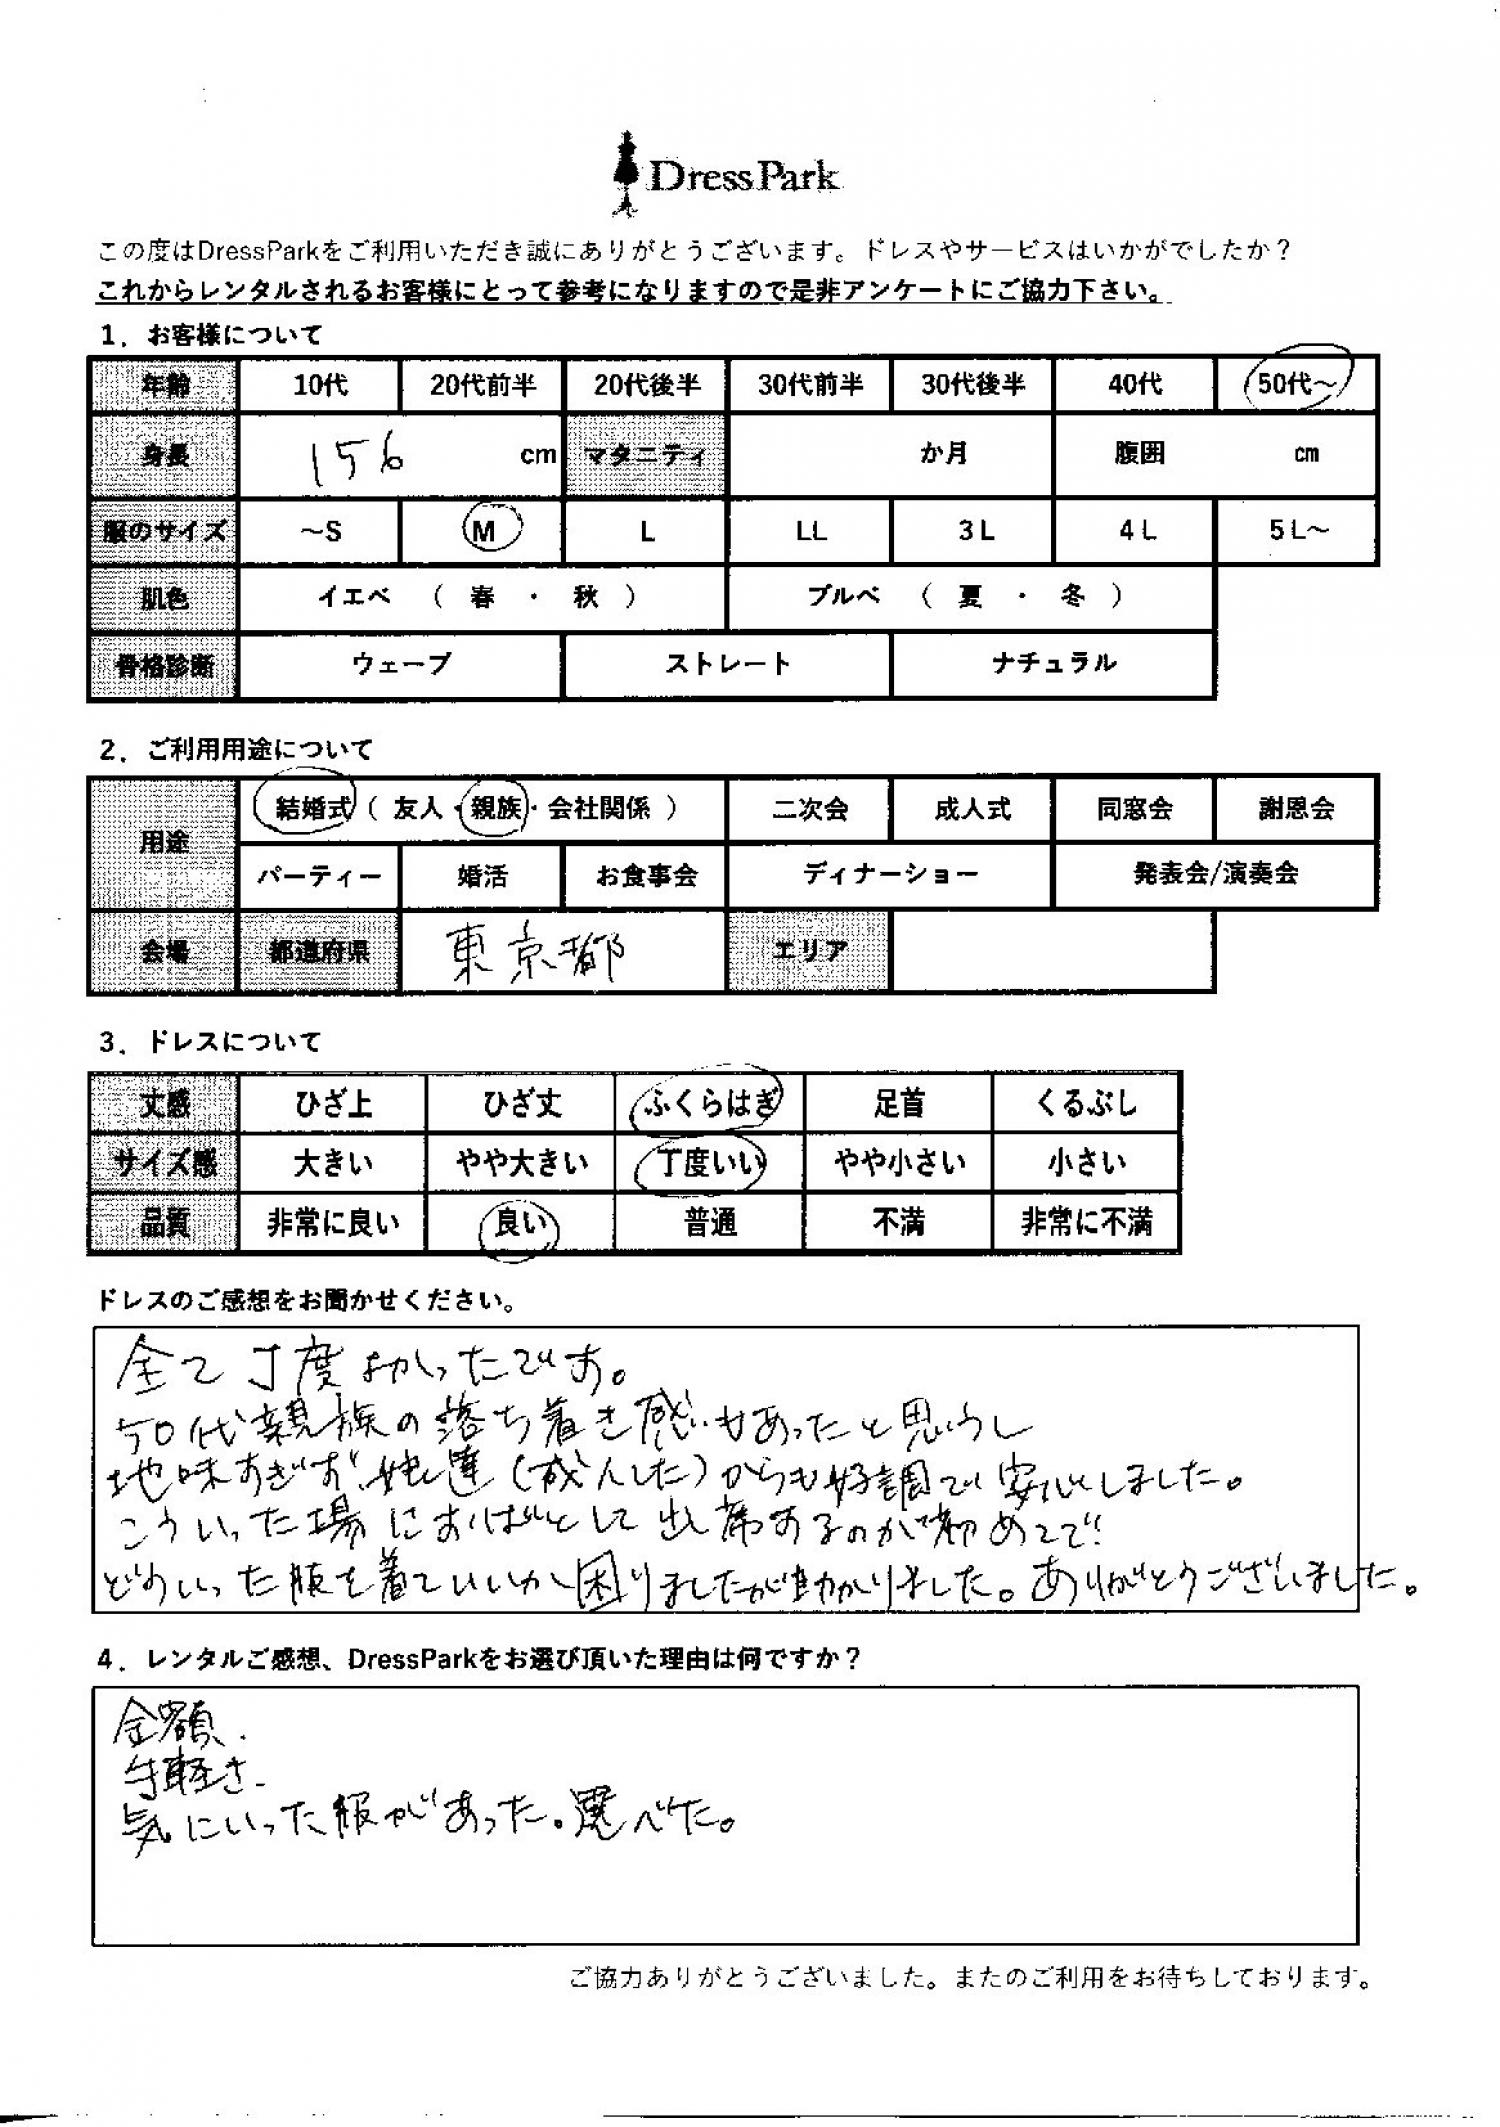 DressPark
この度はDressParkをご利用いただき誠にありがとうございます。ドレスやサービスはいかがでしたか？
これからレンタルされるお客様にとって参考になりますので是非アンケートにご協力下さい。
1．お客様について
年齢 10代 20代前半 20代後半 30代前半 30代後半 40代 50代～
身長 156 cm マタニティ か月 腹囲 cm
服のサイズ ～S M L LL 3L 4L 5L～
肌色 イエベ （ 春 ・ 秋 ） ブルベ （ 夏 ・ 冬 ）
骨格診断 ウェーブ ストレート ナチュラル
2．ご利用用途について
用途 結婚式（ 友人・親族・会社関係 ） 二次会 成人式 同窓会 謝恩会
パーティー 婚活 お食事会 ディナーショー 発表会/演奏会
会場 都道府県 東京都 エリア
3．ドレスについて
丈感 ひざ上 ひざ丈 ふくらはぎ 足首 くるぶし
サイズ感 大きい やや大きい 丁度いい やや小さい 小さい
品質 非常に良い 良い 普通 不満 非常に不満
ドレスのご感想をお聞かせください。
全て丁度よかったです。
50代親族の落ち着き感もあったと思うし
地味すぎず、娘達（成人した）からも好調で安心しました。
こういった場におばとして出席するのが初めてで
どういった服を着ていいか困りましたが助かりました。ありがとうございました。
4．レンタルご感想、DressParkをお選び頂いた理由は何ですか？
金額.
手軽さ.
気にいった服があった。選べた。
ご協力ありがとうございました。またのご利用をお待ちしております。